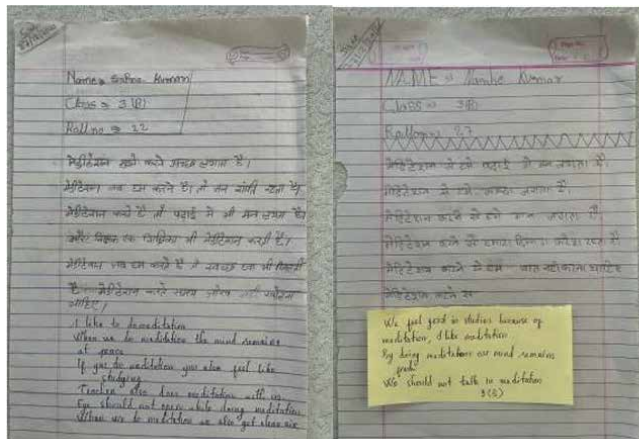 Class 3(B)
Roll no 22
मेडिटेशन करने अच्छा लगता है।
मेडिटेशन जब हम करते है। तो मन शांति रहता है।
मेडिटेशन करते है तो पढ़ाई में भी मन लगता है।
मेडिटेशन करती है।
मेडिटेशन जब हम करते है
मेडिटेशन करते समय आँख नहीं खोलना
चाहिए।
I like to do meditation
When we do meditation the mind remains
at peace
If you do meditation you also feel like
studying
Teacher also does meditation with us
Eye should not open while doing meditation
When we do meditation we also get clean air
NAME Kumar
Class 3(B)
Roll no 27
मेडिटेशन से हमे पढ़ाई में मन लगता है.
मेडिटेशन से हमे अच्छा लगता है.
मेडिटेशन करने से हमे मन लगता है.
मेडिटेशन करने से हमारा दिमाग फ्रेश रहता है
मेडिटेशन करने से हम बात नही करना चाहिए
मेडिटेशन करने से
We feel good in studies because of
meditation, I like meditation
By doing meditation our mind remains
fresh
We should not talk in meditation
3(B)